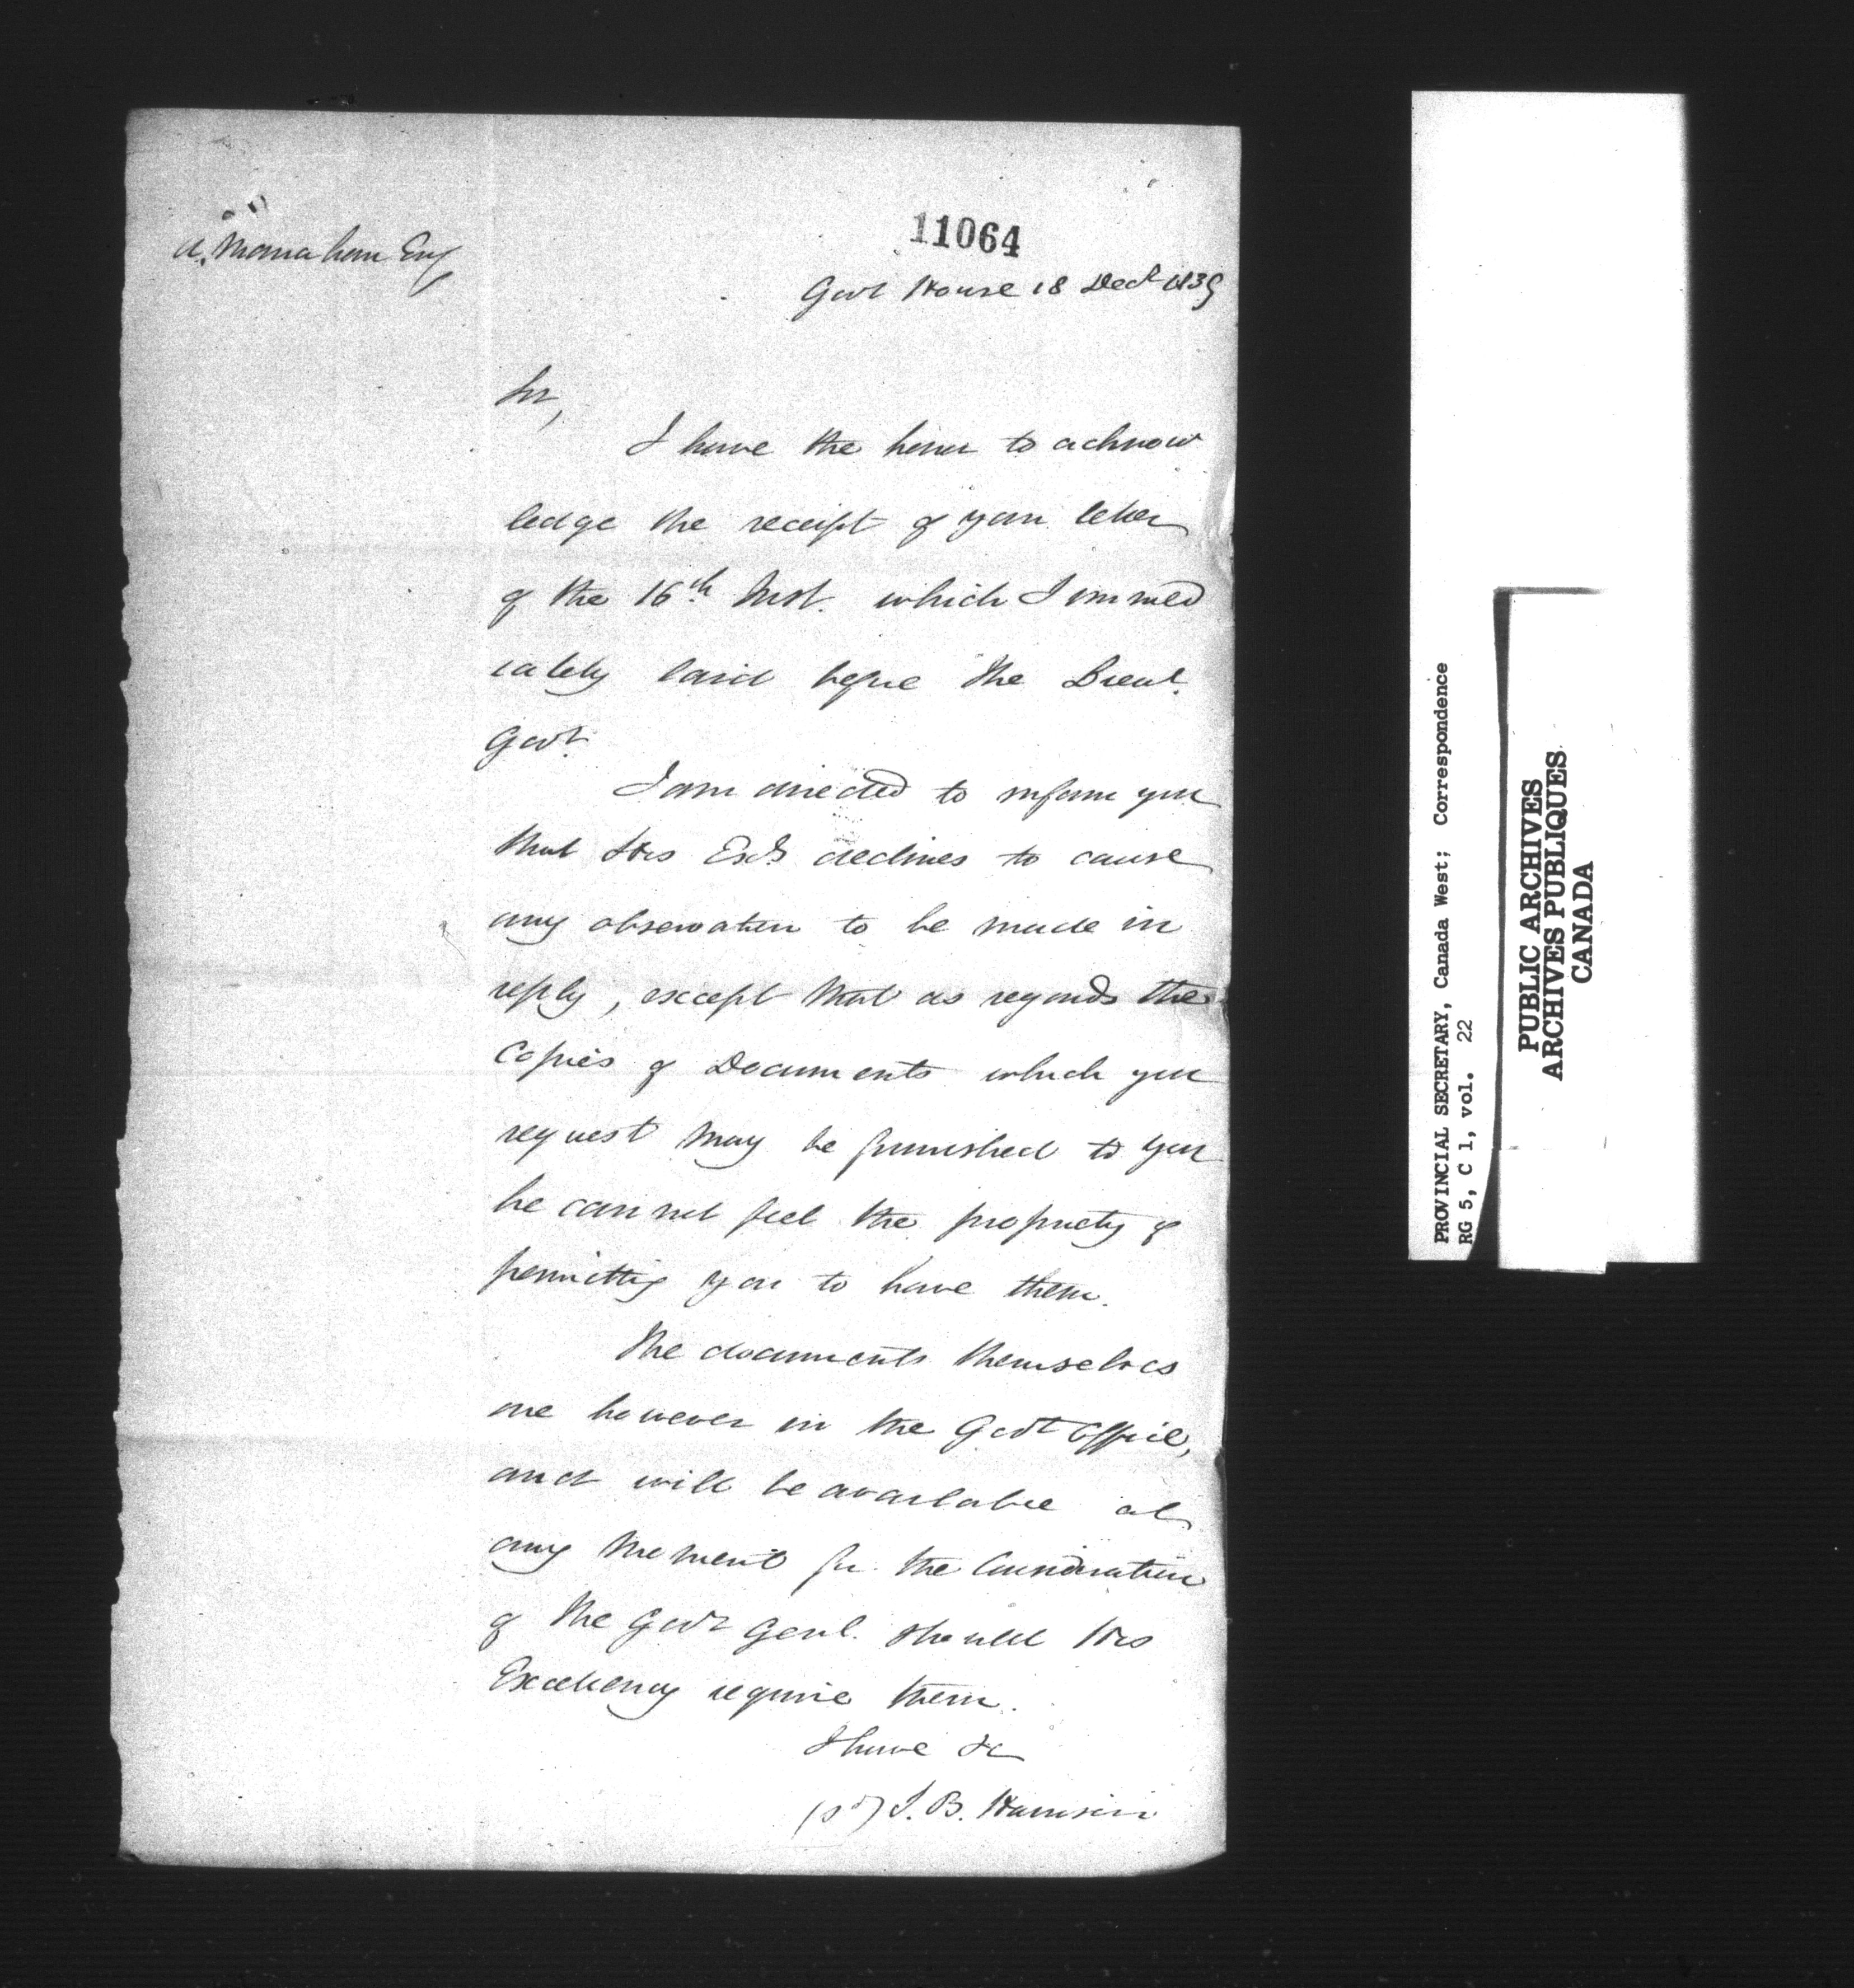 11064
A. Manahan Esq
Govt House 18 Decr 1839
Sir,
I have the honor to acknow
ledge the receipt of your letter
of the 16th Inst. which I immed
iately laid before the Lieut.
Govr.
I am directed to inform you
that His Excy declines to cause
any observation to be made in
reply, except that as regards the
Copies of Documents which you
request may be furnished to you
he cannot feel the propriety of
permitting you to have them.
The documents themselves
are however in the Govt Office,
and will be available at
any moment for the Consideration
of the Govr Genl. should His
Excellency require them.
I have &c
(sd) S. B. Harrison
PROVINCIAL SECRETARY, Canada West; Correspondence
RG 5, C 1, vol. 22
PUBLIC ARCHIVES
ARCHIVES PUBLIQUES
CANADA